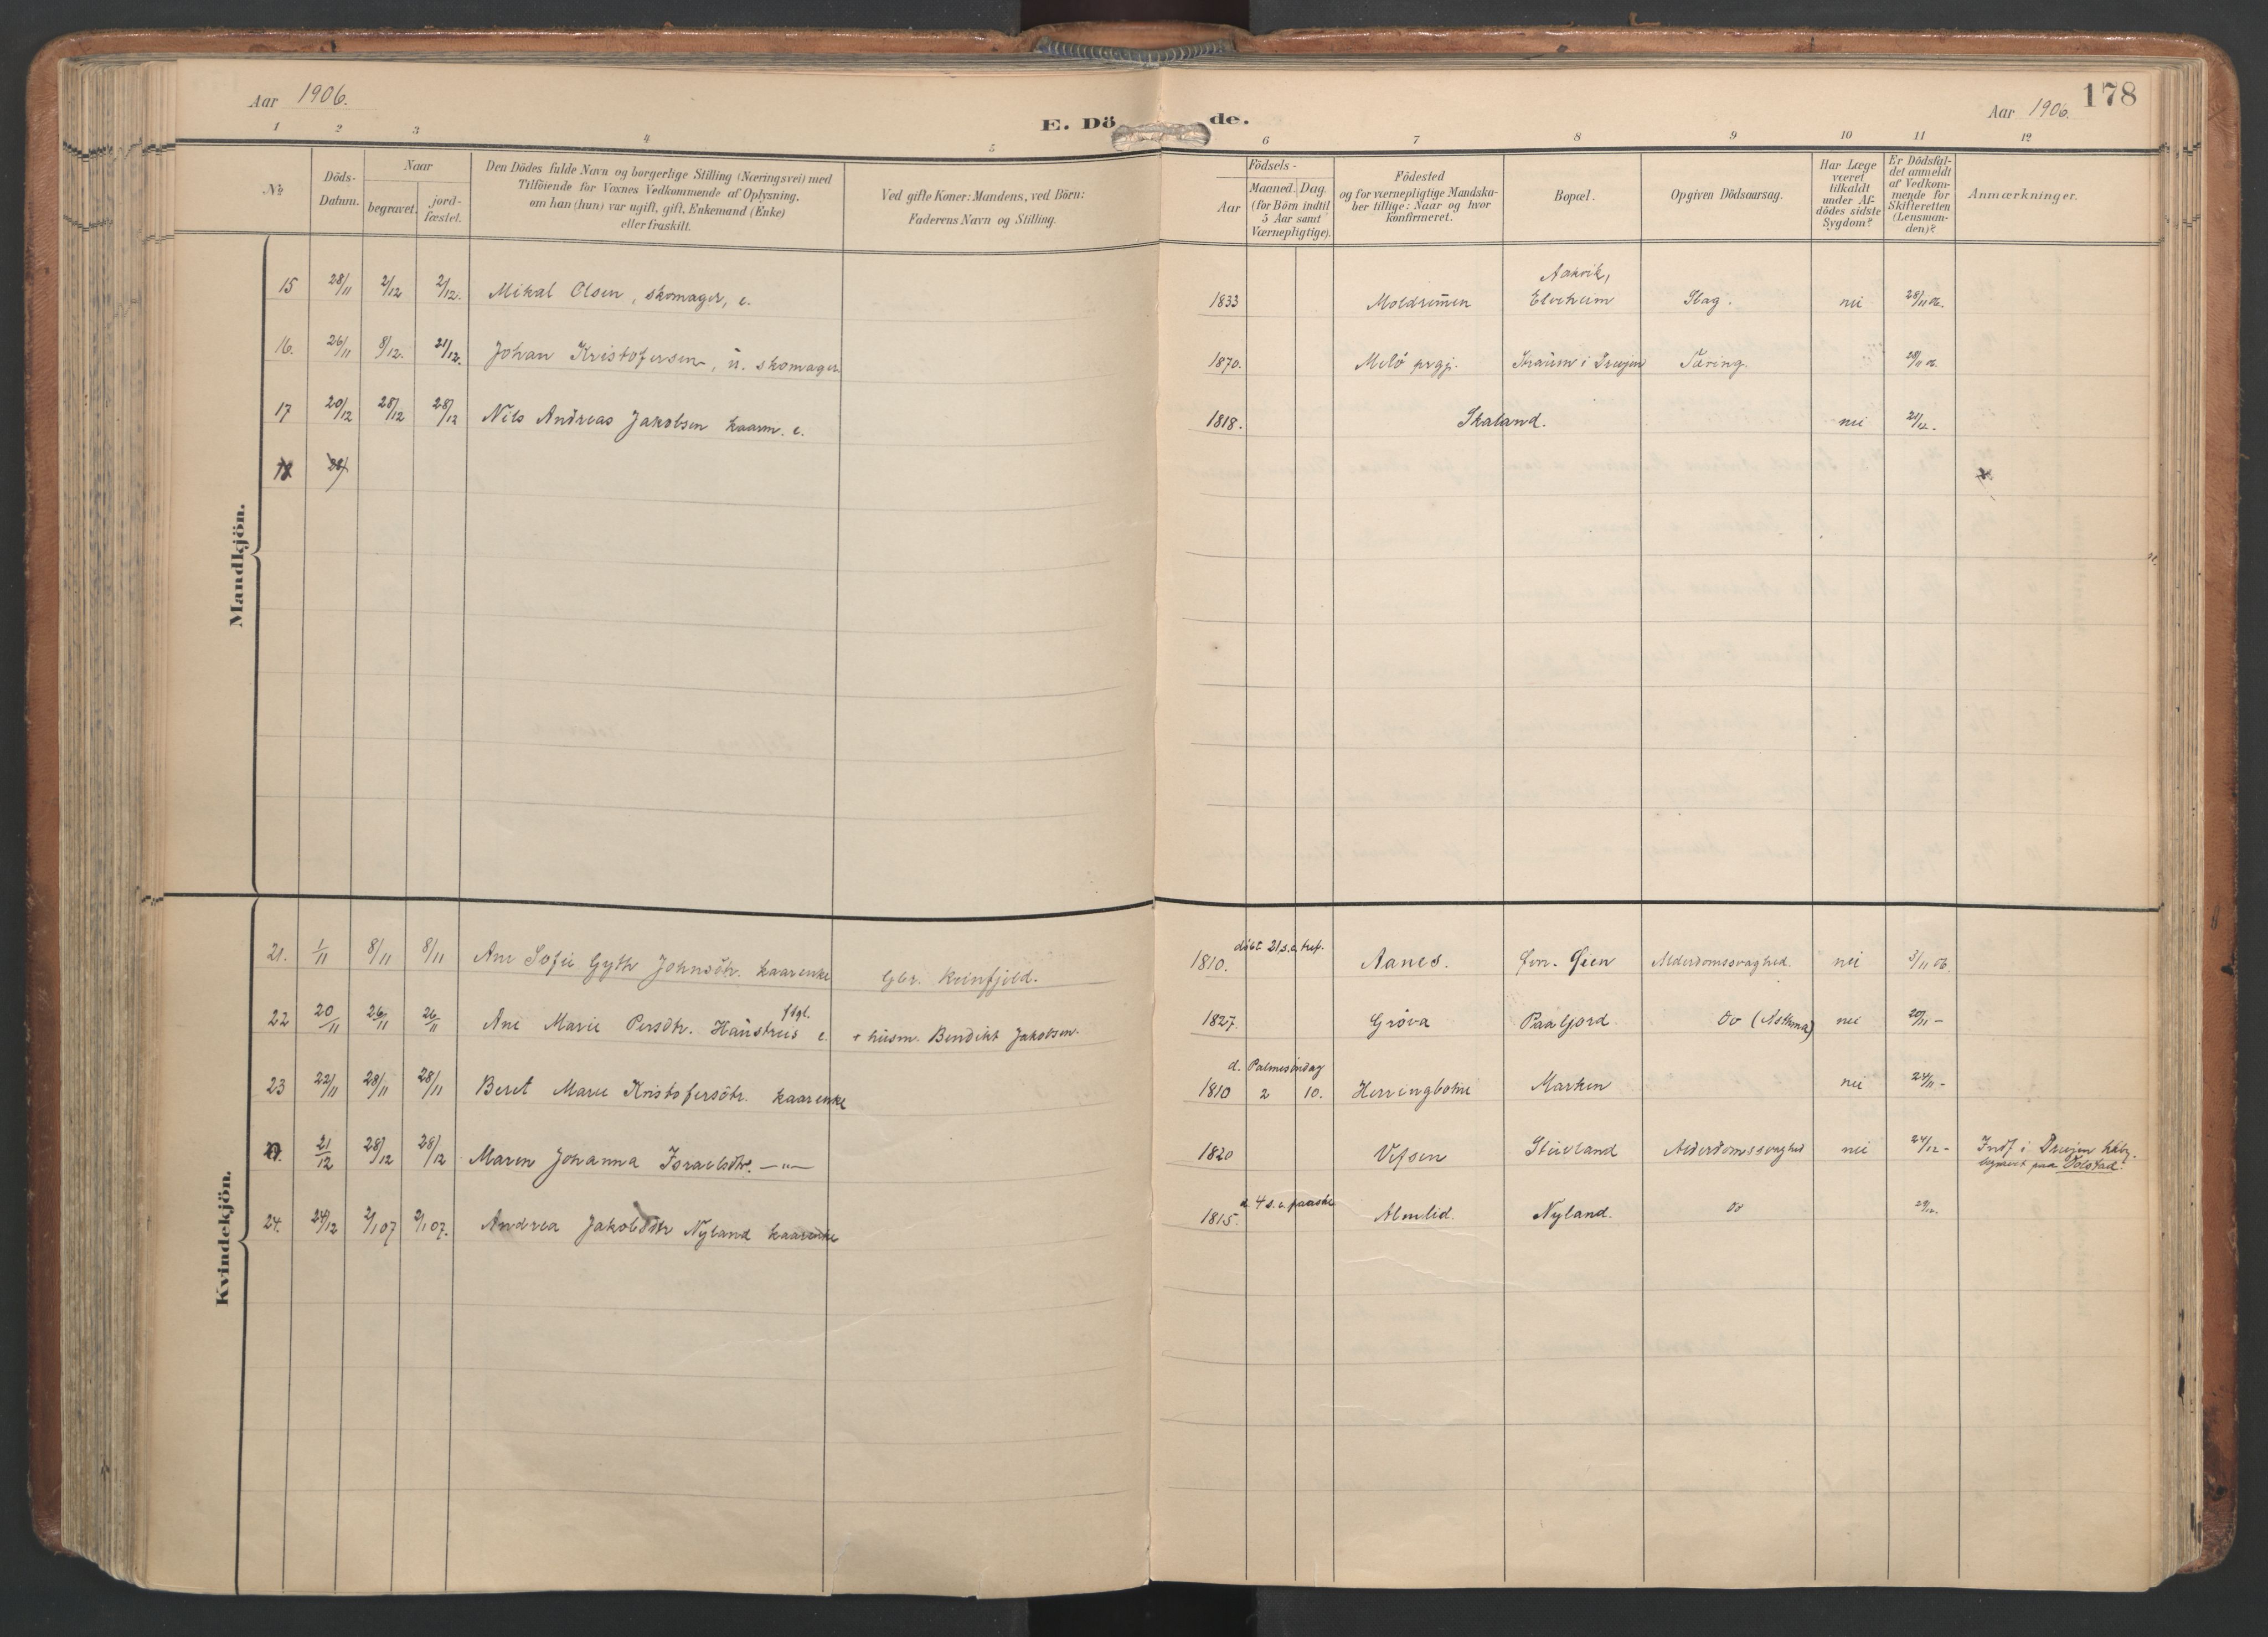 Aar 1906.
178
Aar 1906.
E. Dö de.
1 2 3 4 5 6 7 8 9 10 11 12
№
Döds-
Datum.
Naar
begravet.
jord-
fæstet.
Den Dödes fulde Navn og borgerlige Stilling (Næringsvei) med
Tilföiende for Voxnes Vedkommende af Oplysning,
om han (hun) var ugift, gift, Enkemand (Enke)
eller fraskilt.
Ved gifte Koner: Mandens, ved Börn:
Faderens Navn og Stilling.
Födsels-
Aar
Maaned. Dag.
(for Börn indtil
5 Aar samt
Værnepligtige).
Födested
og for værnepligtige Mandska-
ber tillige: Naar og hvor
konfirmeret.
Bopæl.
Opgiven Dödsaarsag.
Har Læge
været
tilkaldt
under Af-
dödes sidste
Sygdom?
Er Dödsfal-
det anmeldt
af Vedkom-
mende for
Skifteretten
(Lensman-
den)?
Anmærkninger.
Mandkjön.
15 28/11 2/12 2/12. Mikal Olsen, skomager, e. 1833 Moldrimen Aakvik, Elveheim Slag. nei 28/11 06.
16. 26/11 8/12. 21/12. Johan Kristofersen, u. skomager 1870. Melö prgj. Straum i Drevjen Tæring. 28/11 06.
17 20/12 28/12 28/12 Nils Andreas Jakobsen kaarm. e. 1818. Skaland. nei 21/12.
18 28/
Kvindekjön.
21. 1/11 8/11 8/11 Ane Sofie Gyth Johnsdtr. kaarenke Gbr. Reinfjeld. 1810. döbt 21 s. e. tref. Aanes. Øvr. Øien Alderdomssvaghed. nei 3/11 06.
22 20/11 26/11 26/11 Ane Marie Persdtr. Haustreis fdgl. e. + husm. Bendikt Jakobsen. 1827. Gröva Paafjord Do (Asthma) nei 20/11 -
23 22/11 28/11 28/11 Beret Marie Kristofersdtr. kaarenke 1810 d. Palmesöndag 2 10. Herringbotne Marken nei 24/11 -
21/12 28/12 28/12 Maren Johanna Israelsdtr. —"— 1820 Vefsen Alderdomssvaghed nei 24/12 - Indf. i Drevjen kbg. begravet paa Dolstad.
24. 24/12 2/1 07 2/1 07. Andrea Jakobsdtr Nyland kaarenke 1815. d. 4 s. e. paaske Almlid. Nyland. Do 29/12.